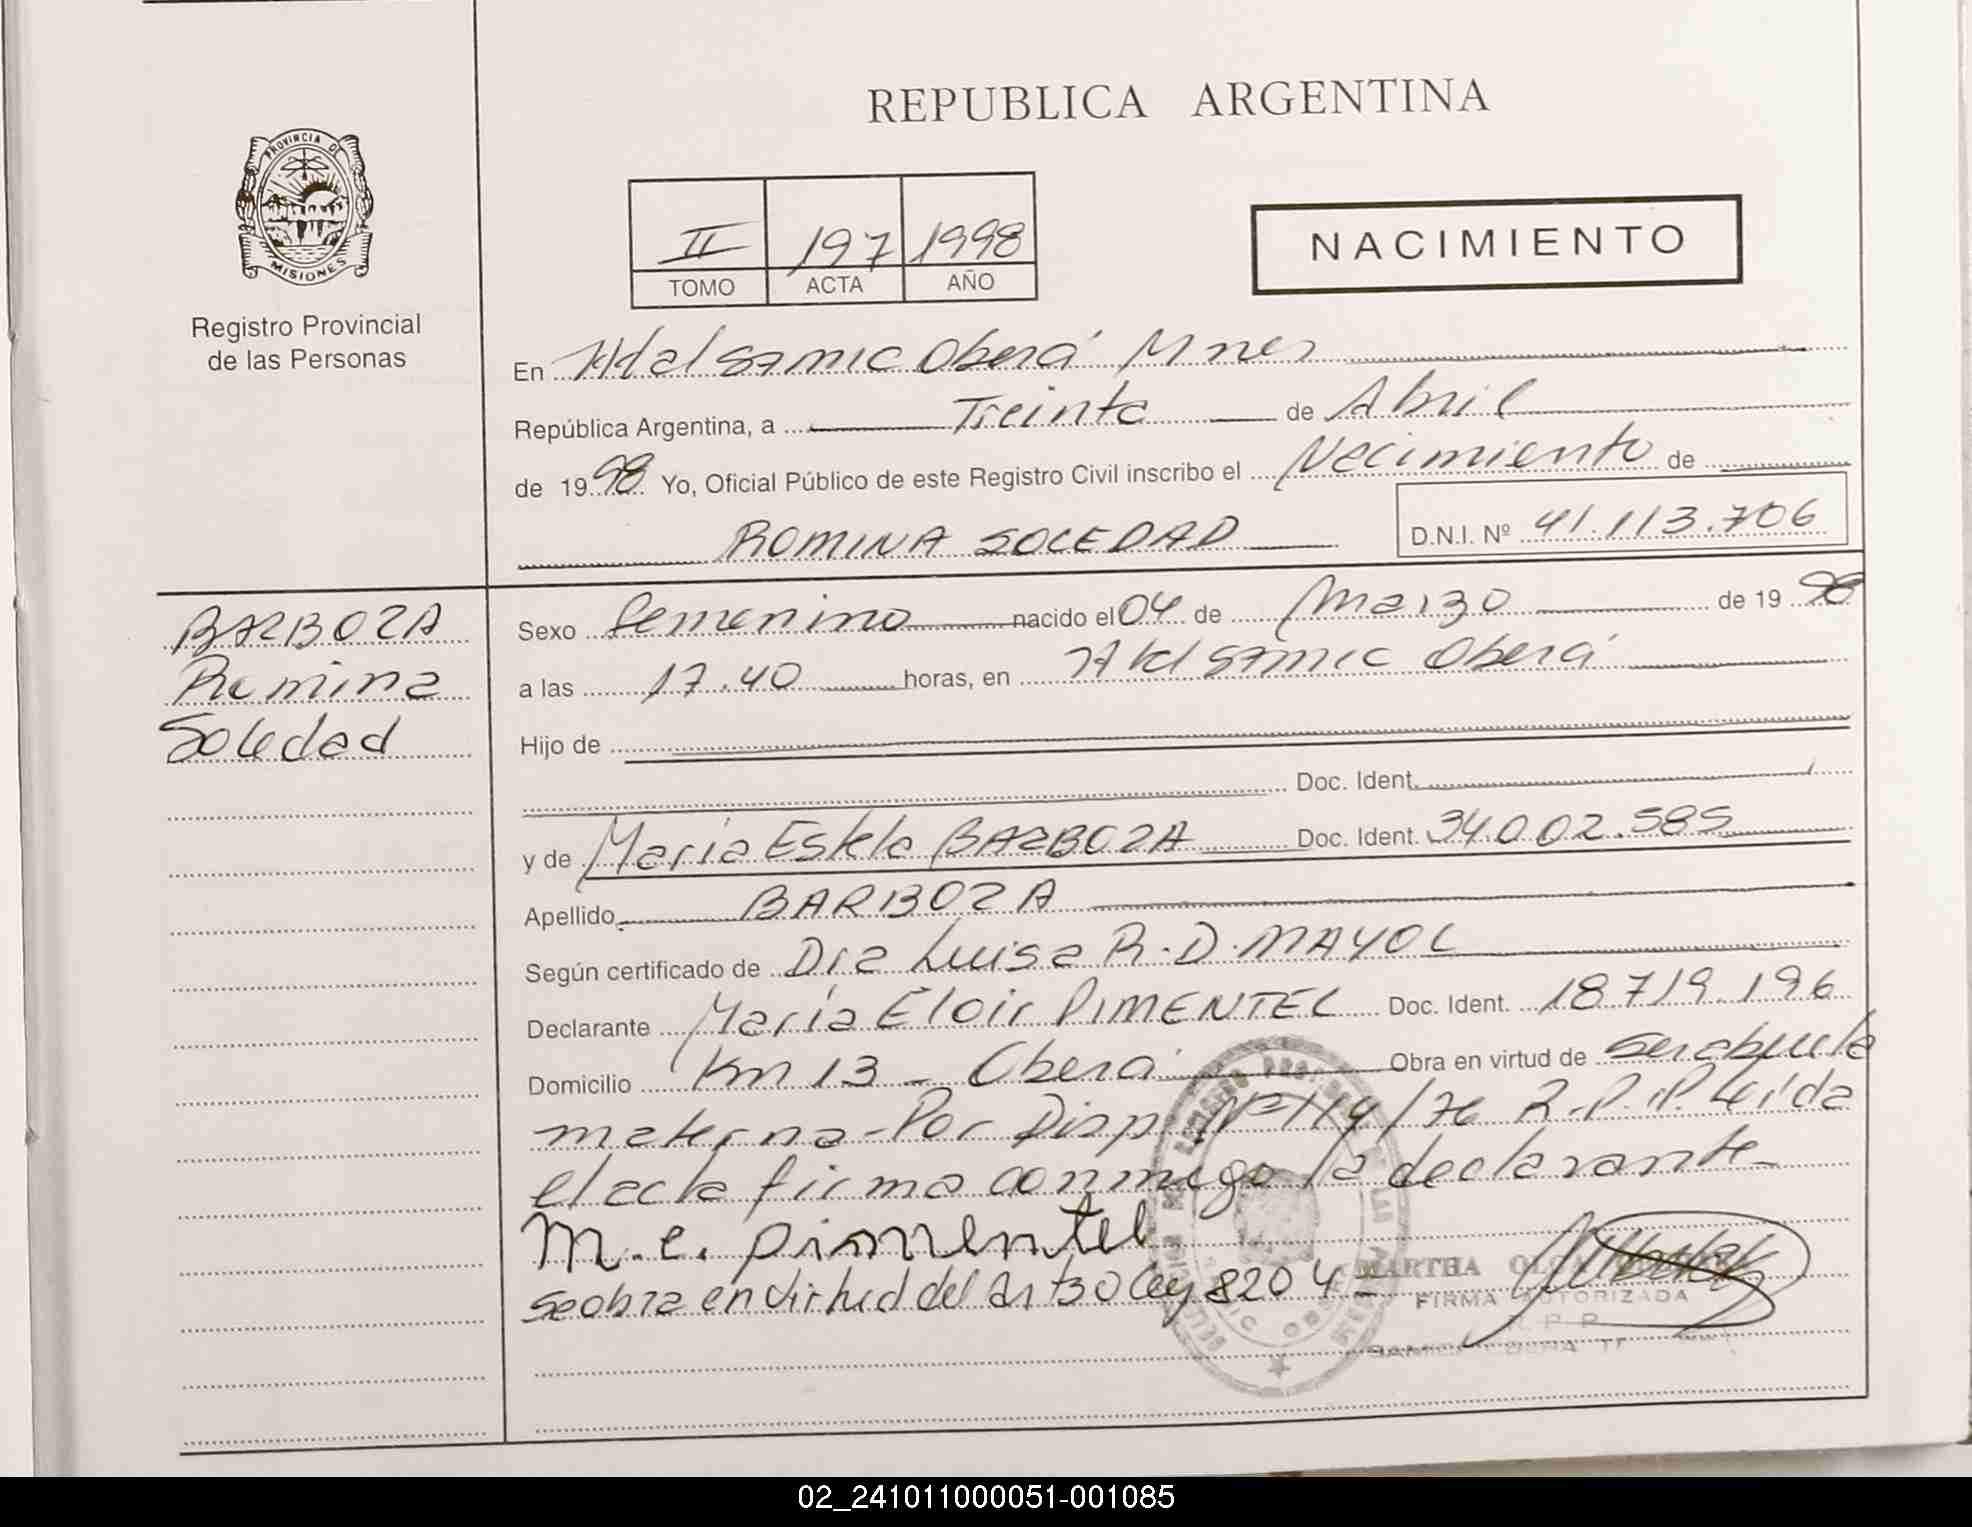 REPUBLICA ARGENTINA
PROVINCIA DE
MISIONES
Registro Provincial
de las Personas
II 197 1998
TOMO ACTA AÑO
NACIMIENTO
En Hdel Samic Oberá Mnes
República Argentina, a Treinta de Abril
de 1998 Yo, Oficial Público de este Registro Civil inscribo el Nacimiento de
ROMINA SOLEDAD D.N.I. Nº 41.113.706
BARBOZA
Romina
Soledad
Sexo femenino nacido el 04 de Marzo de 1998
a las 17.40 horas, en Hdel Samic Oberá
Hijo de
Doc. Ident.
y de María Estela BARBOZA Doc. Ident. 34.002.585
Apellido BARBOZA
Según certificado de Dra Luisa R. D. MAYOL
Declarante María Eloir PIMENTEL Doc. Ident. 18719.196
Domicilio Km 13 - Oberá Obra en virtud de ser abuela
materna - Por Disp Nº 119/76 R.P.P. Leída
el acta firma conmigo la declarante
M. e. pimentel
se obra en virtud del art 30 Ley 8204
MARTHA
FIRMA AUTORIZADA
R.P.P.
02_241011000051-001085